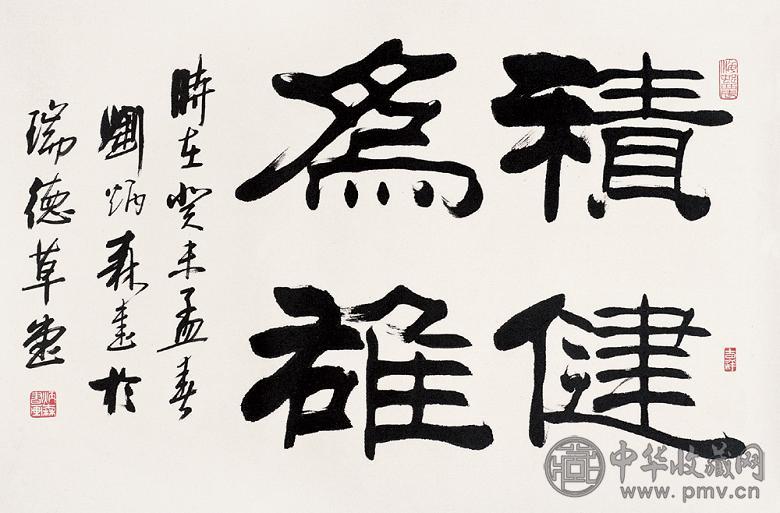 積健
為雄
時在癸未孟春
劉炳森書於
瑞德草堂
吉祥
炳森書畫
中华收藏网
www.pmv.cn